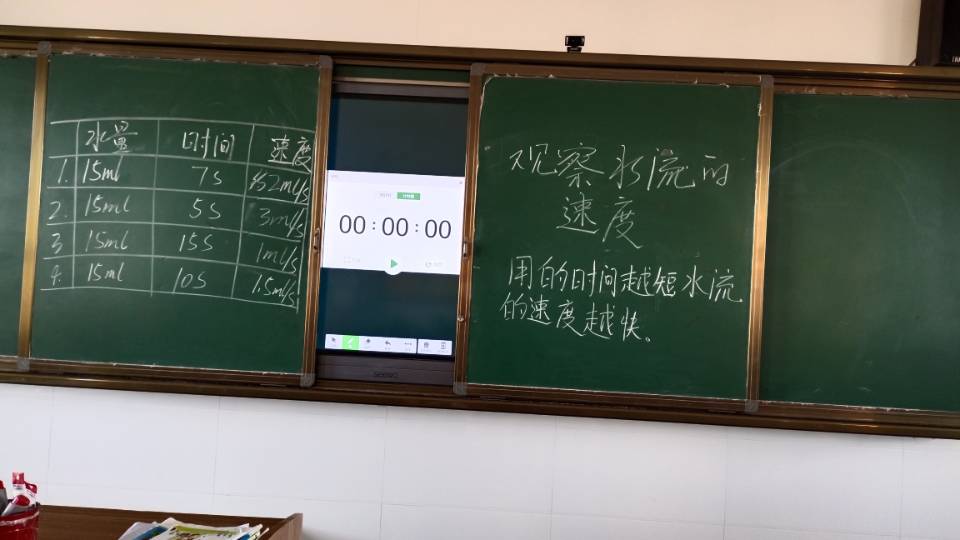 水量 时间 速度
1. 15ml 7s 约2ml/s
2. 15ml 5s 3ml/s
3 15ml 15s 1ml/s
4. 15ml 10s 1.5ml/s
00:00:00
观察水流的
速度
用的时间越短水流
的速度越快。